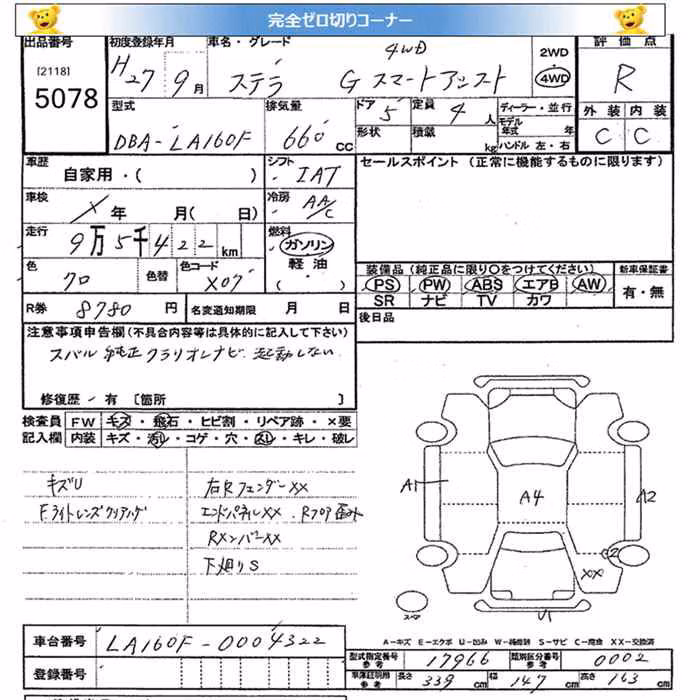 完全ゼロ切りコーナー
出品番号 初度登録年月 車名・グレード 評価点
[2118] 5078 H27年9月 ステラ 4WD G スマートアシスト 2WD 4WD R
型式 排気量 ドア 5 定員 4人 ディーラー・並行 外装 内装
DBA-LA160F 660cc 形状 積載 kg モデル年式 年 ハンドル 左・右 C C
車歴 自家用・( ) シフト IAT セールスポイント (正常に機能するものに限ります)
車検 年 月( 日) 冷房 AA/C
走行 9万5千422km 燃料 ガソリン 軽油 ( ・ )
色 クロ 色替 色コード X07 装備品 (純正品に限り○をつけてください) 新車保証書
PS PW ABS エアB AW 有・無
SR ナビ TV カワ
R券 8780円 名変通知期限 月 日 後日品
注意事項申告欄(不具合内容等は具体的に記入して下さい)
スバル純正クラリオンナビ 起動しない
修復歴/有 [箇所 ]
検査員 FW キズ・飛石・ヒビ割・リペア跡・×要
記入欄 内装 キズ・汚れ・コゲ・穴・スレ・キレ・破レ
キズU 右Rフェンダー XX
Fライトレンズクリアリング エンドパネルXX Rフロア歪み
RメンバーXX
下廻りS
A1 A4 A2
XX
U1
A-キズ E-エクボ U-凹み W-補修跡 S-サビ C-腐食 XX-交換済
車台番号 LA160F-0004322
型式指定番号 参考 17966 類別区分番号 参考 0002
登録番号 車庫証明用 参考 長さ 339cm 幅 147cm 高さ 163cm